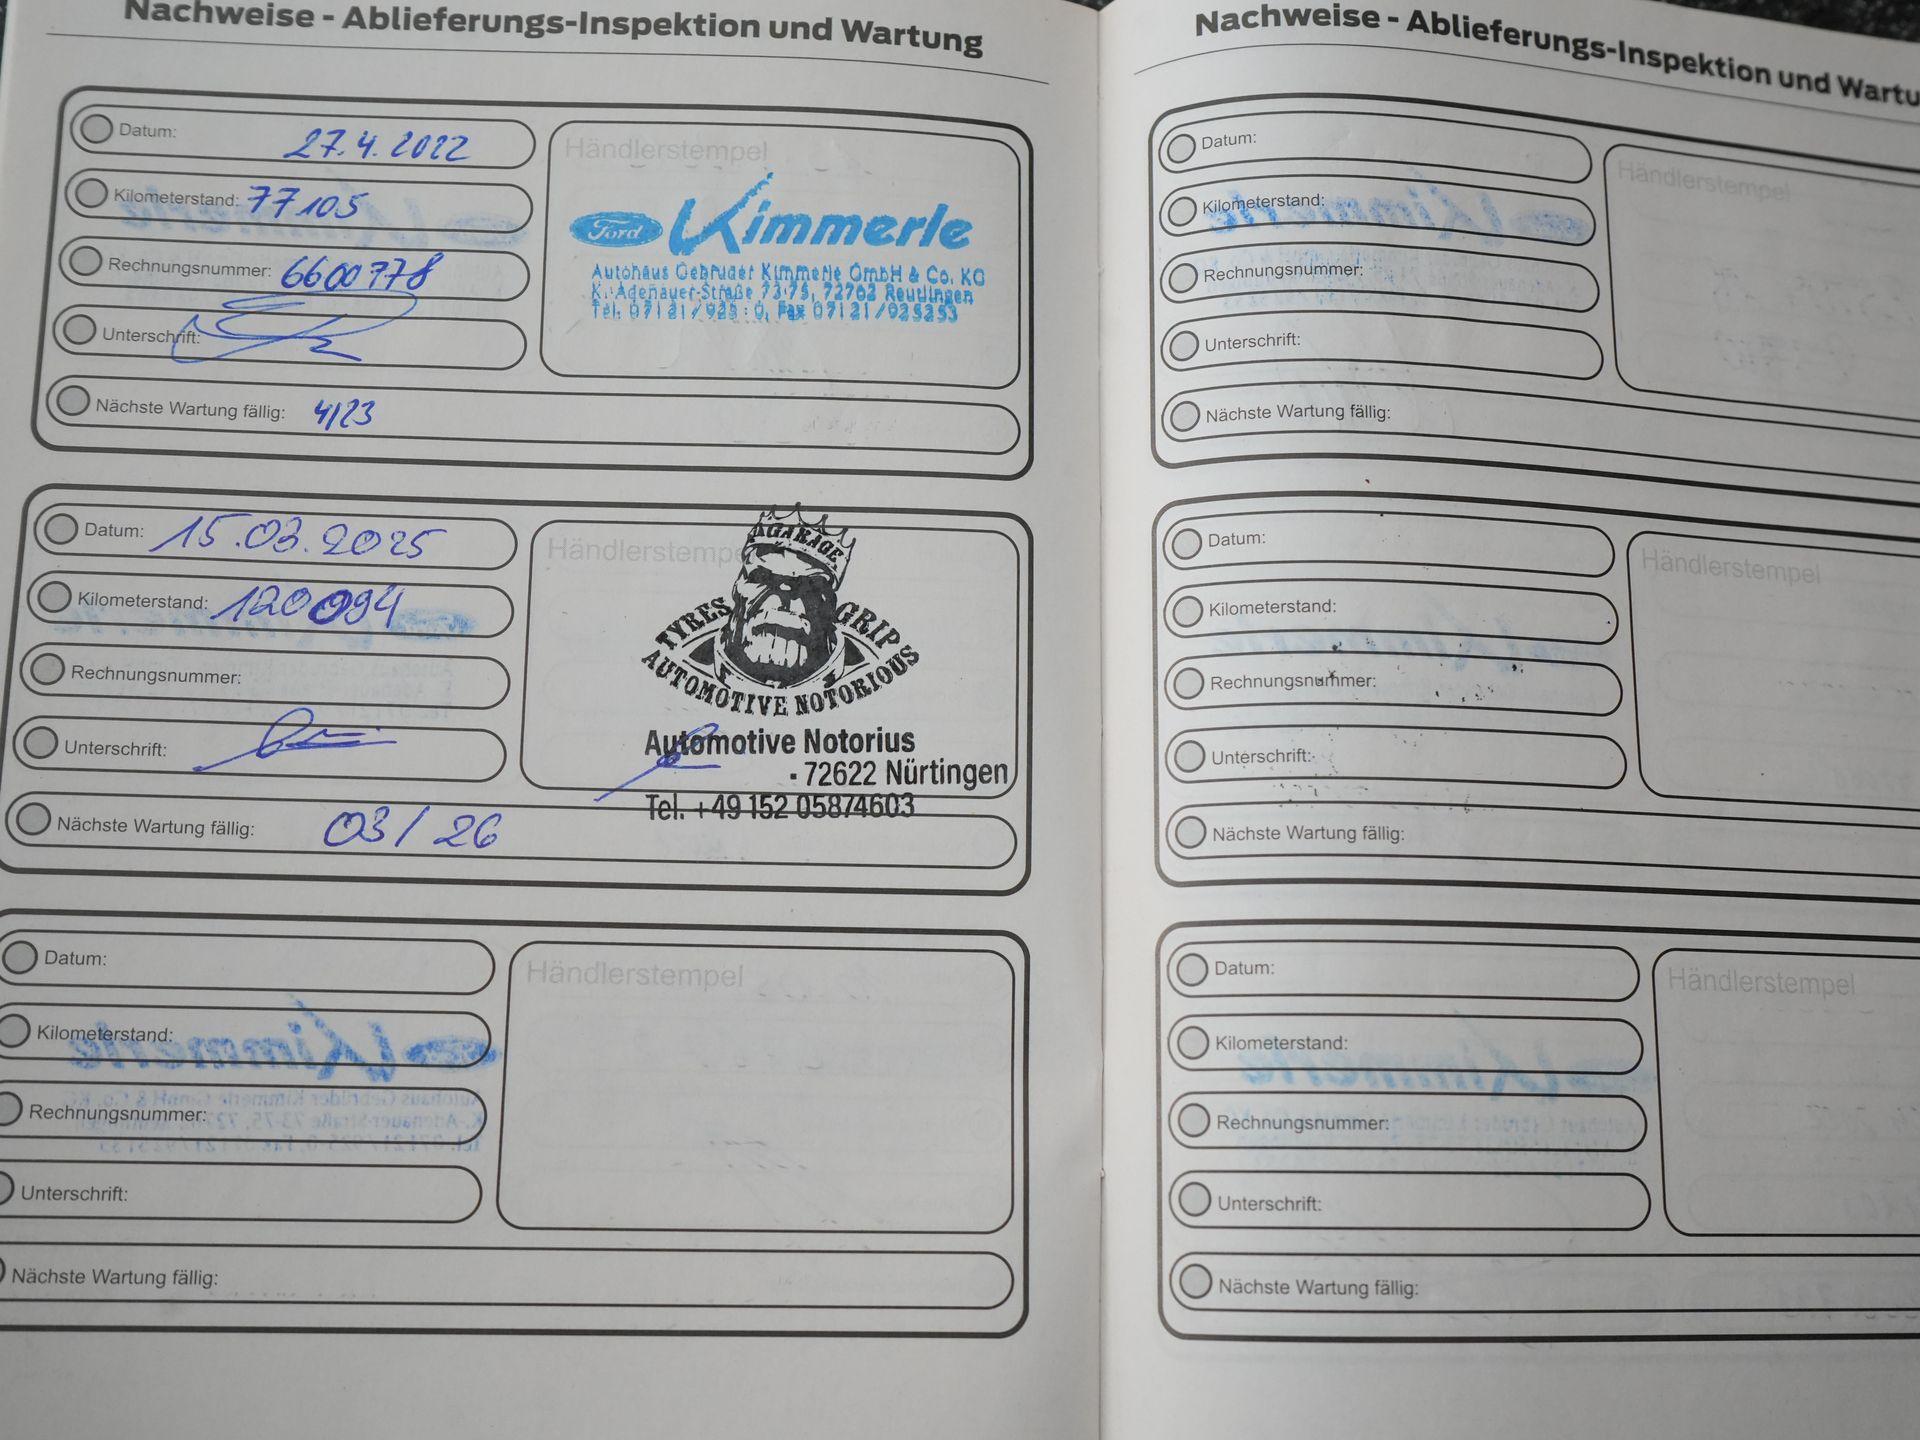 Nachweise - Ablieferungs-Inspektion und Wartung
Datum: 27.4.2022
Kilometerstand: 77105
Rechnungsnummer: 6600778
Unterschrift:
Nächste Wartung fällig: 4/23
Händlerstempel
Ford Kimmerle
Autohaus Gebrüder Kimmerle GmbH & Co. KG
K.-Adenauer-Straße 73-75, 72762 Reutlingen
Tel. 07121/925-0, Fax 07121/925253
Datum: 15.03.2025
Kilometerstand: 120094
Rechnungsnummer:
Unterschrift:
Nächste Wartung fällig: 03/26
Händlerstempel
GARAGE
TYRES GRIP
AUTOMOTIVE NOTORIOUS
Automotive Notorius
72622 Nürtingen
Tel. +49 152 05874603
Datum:
Kilometerstand:
Rechnungsnummer:
Unterschrift:
Nächste Wartung fällig:
Händlerstempel
Nachweise - Ablieferungs-Inspektion und Wartu
Datum:
Kilometerstand:
Rechnungsnummer:
Unterschrift:
Nächste Wartung fällig:
Händlerstempel
Datum:
Kilometerstand:
Rechnungsnummer:
Unterschrift:
Nächste Wartung fällig:
Händlerstempel
Datum:
Kilometerstand:
Rechnungsnummer:
Unterschrift:
Nächste Wartung fällig:
Händlerstempel